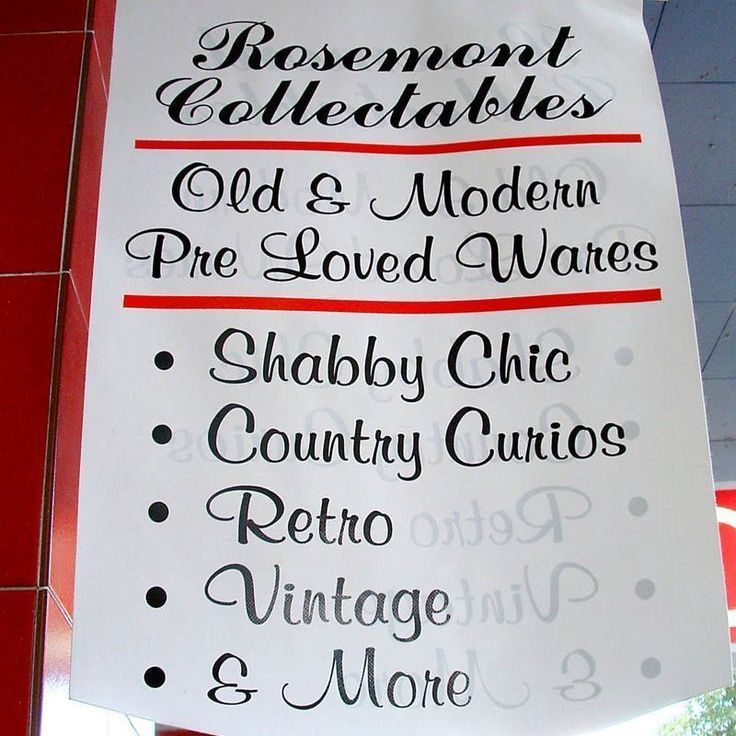 Rosemont
Collectables
Old & Modern
Pre Loved Wares
• Shabby Chic
• Country Curios
• Retro
• Vintage
• & More